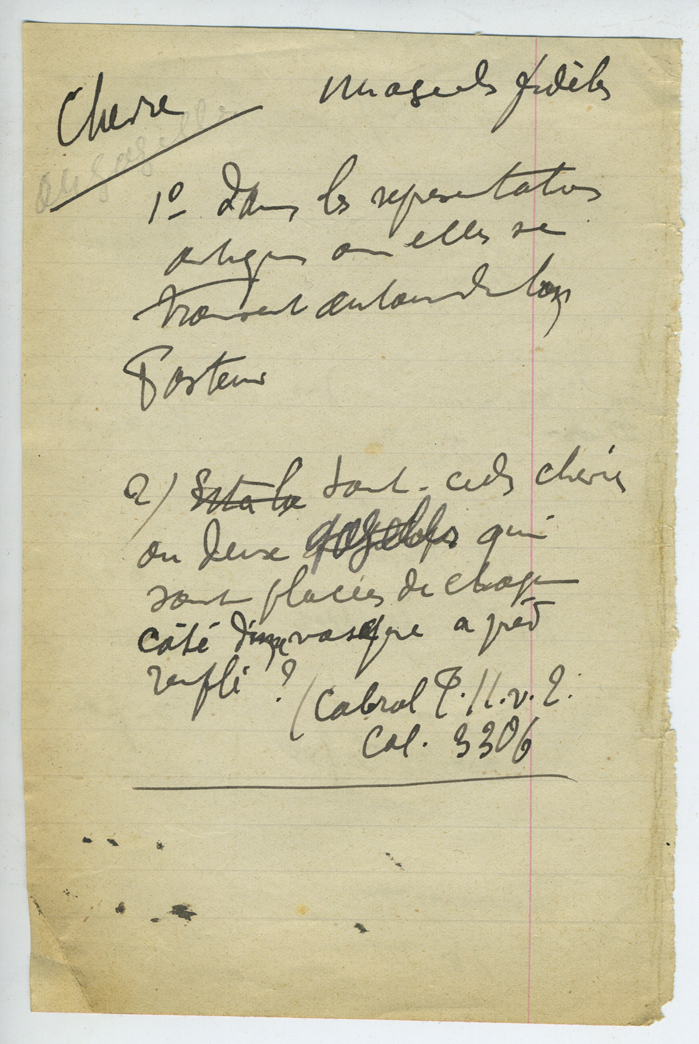 Chèvre
ou gazelle
fidèles
1º Dans les representations
antiques ou elles se
trouvent autour du bon
Pasteur
2) sont-ce des chèvres
ou deux gazelles qui
sont placées de chaque
côté d'une vasque a pied
renflé ?
(Cabrol P. II. v. 2.
Col. 3306